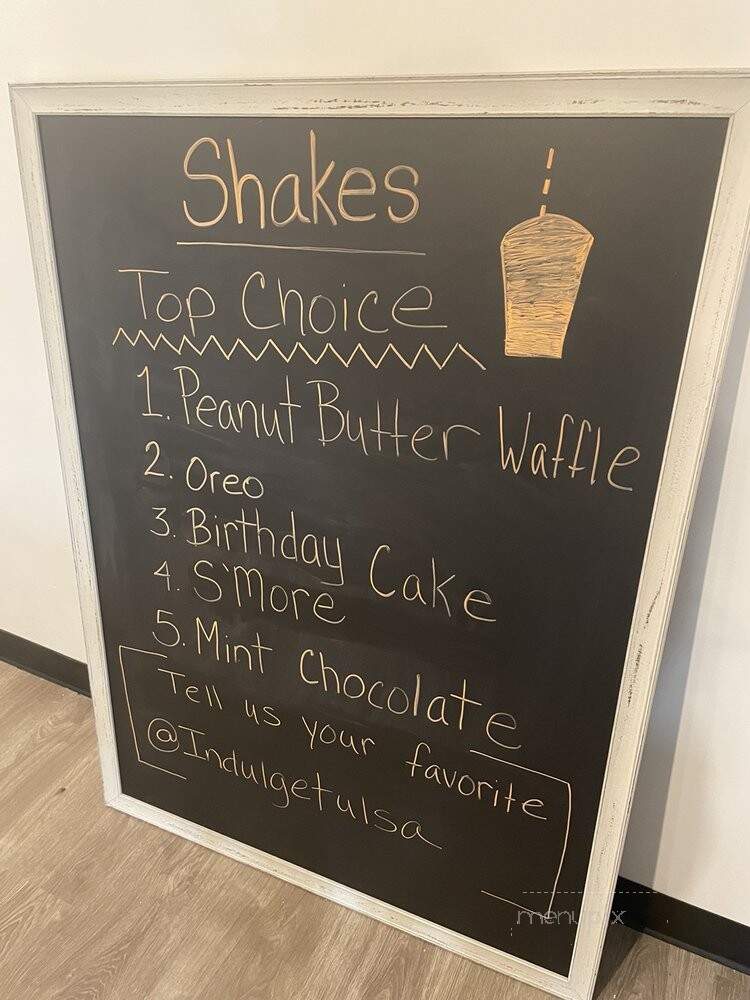 Shakes
Top Choice
1. Peanut Butter Waffle
2. Oreo
3. Birthday Cake
4. S'More
5. Mint Chocolate
Tell us your favorite
@Indulgetulsa
menupix